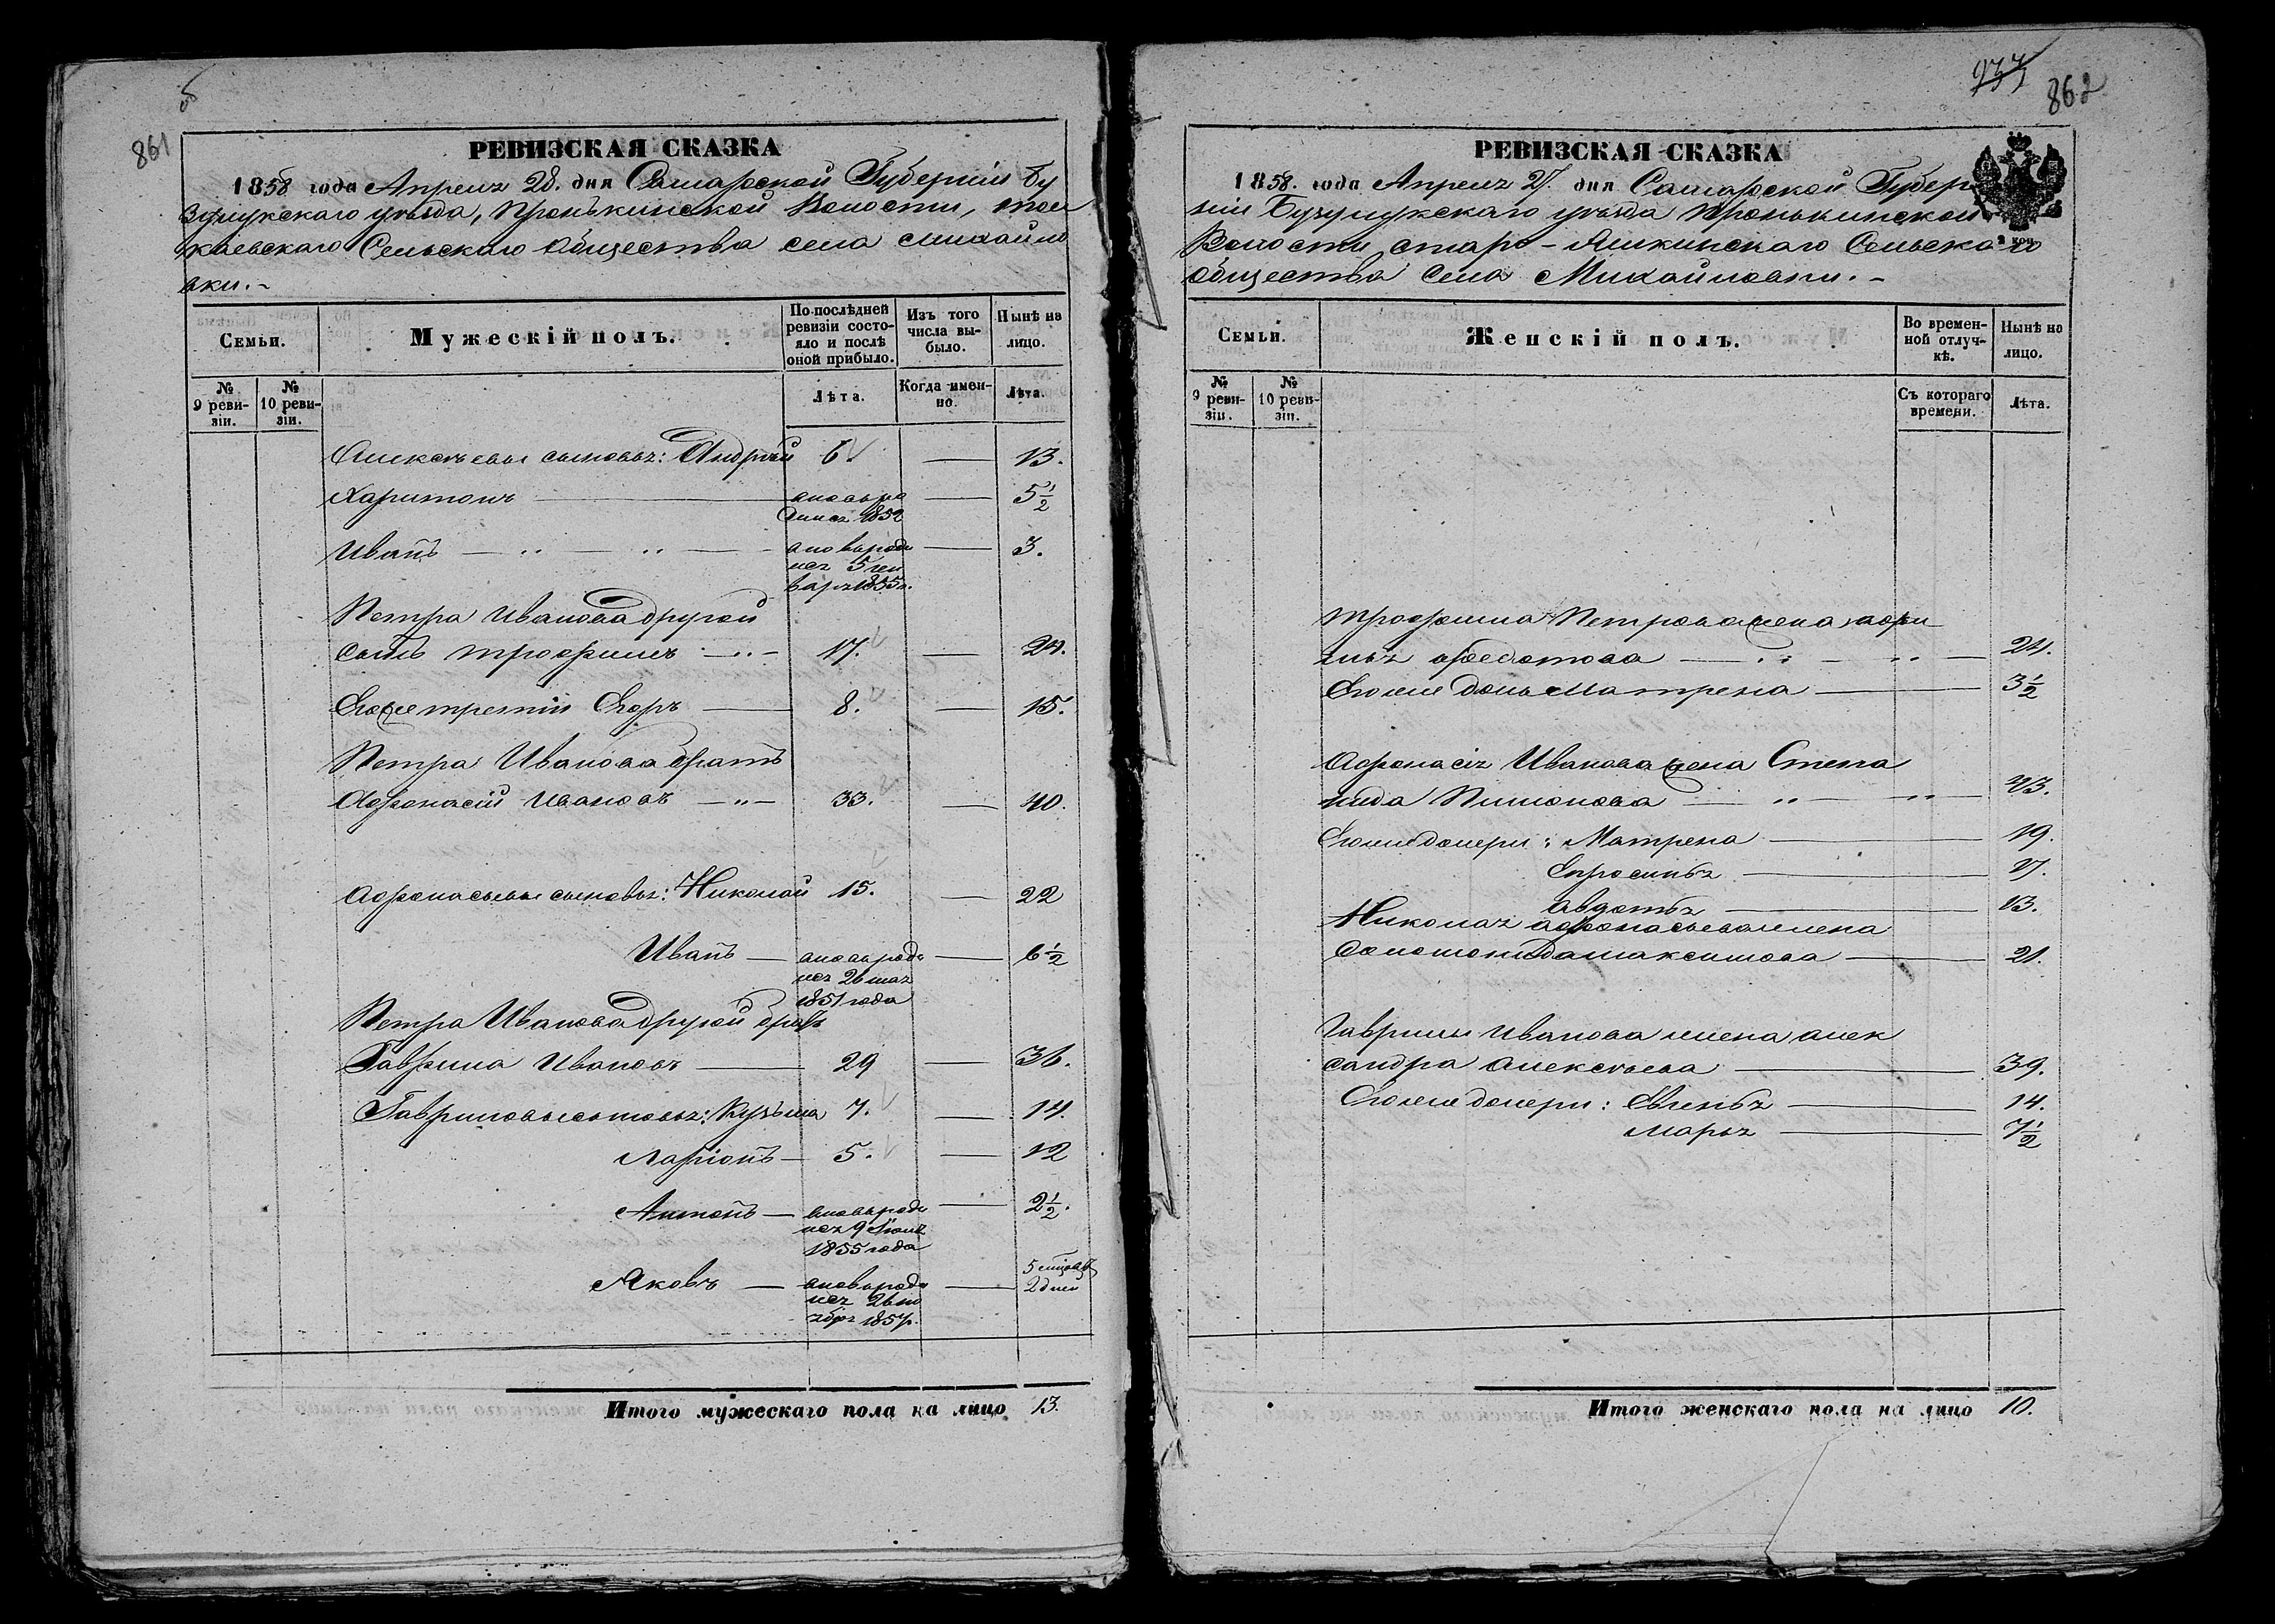 861
РЕВИЗСКАЯ СКАЗКА
1858 года Апреля 28. дня Самарской Губерніи Бу
зулукскаго уѣзда, Пронькинской Волости,
каевскаго Сельскаго Общества села Михайло
вки.-
Семьи.
Мужескій полъ.
По послѣдней ревизіи состояло и послѣ оной прибыло.
Изъ того числа выбыло.
Нынѣ на лицо.
№ 9 ревизіи.
№ 10 ревизіи.
Лѣта.
Когда именно.
Лѣта.
Алексѣевы сыновья: Андрей 6. — 13.
Харитонъ — вновь ро — 5½
дился 1852
Иванъ — вновь роди — 3.
лся 5 ген
варя 1855 г.
Петра Иванова другой
сынъ Трофимъ 17. — 24.
Егоже третій Егоръ — 8. — 15.
Петра Иванова братъ
Афонасій Ивановъ 33. — 40.
Афонасьевы сыновья: Николай 15. — 22
Иванъ — вновь роди — 6½
лся 26 мая
1851 года
Петра Иванова другой братъ
Гаврила Ивановъ — 29 — 36.
Гавриловы сыновья: Кузьма 7. — 14.
Ларіонъ — 5. — 12
Антонъ — вновь роди — 2½.
лся 9 Іюня
1855 года
Яковъ — вновь роди — 5 місяцъ
лся 26 но 2 дней
ября 1857.
Итого мужескаго пола на лицо 13.
937
862
РЕВИЗСКАЯ СКАЗКА
1858. года Апреля 27. дня Самарской Губер
ніи Бузулукскаго уѣзда Пронькинской
Волости Старо-Ашкинскаго Сельскаго
Общества Села Михайловки.-
Семьи.
Женскій полъ.
Во временной отлучкѣ.
Нынѣ на лицо.
№ 9 ревизіи.
№ 10 ревизіи.
Съ котораго времени.
Лѣта.
Трофима Петрова жена
Федотова — 24.
Егоже дочь Матрена — 3½
Афонасія Иванова жена Степа
нида — 43.
Егоже дочери: Матрена — 19.
Епросинья — 17.
Авдотья — 13.
Николая Афонасьева жена
Соломонида Максимова — 21.
Гаврилы Иванова жена Алек
сандра Алексѣева — 39.
Егоже дочери: Евгенья — 14.
Марья — 7½
Итого женскаго пола на лицо 10.